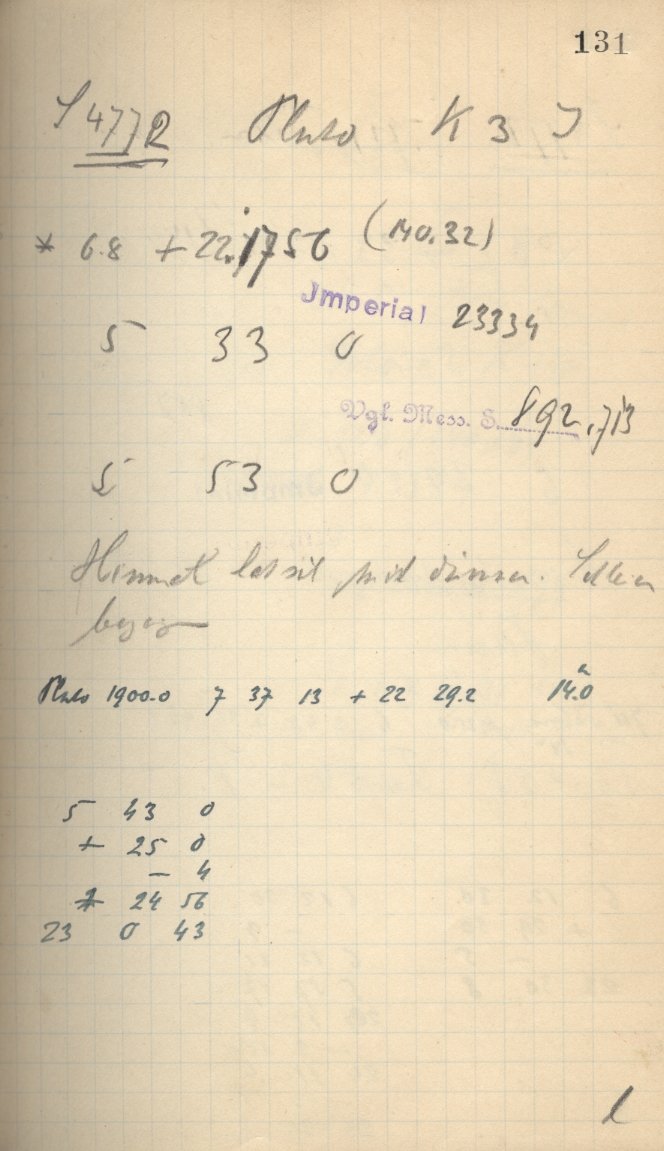 131
S 4772 Pluto K 3 J
* 6.8 + 22.1756 (140.32)
Imperial 23334
5 33 0
Vgl. Mess. S. 892, 713
5 53 0
Himmel mit dünnen
Pluto 1900.0 7 37 13 + 22 29.2 14.0
5 43 0
+ 25 0
- 4
24 56
23 0 43